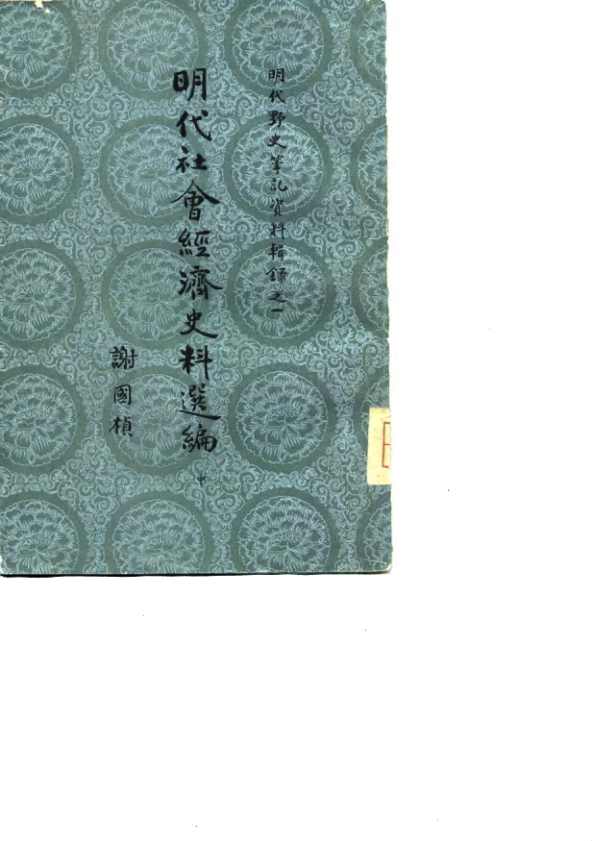 明代野史筆記資料輯錄之一
明代社會經濟史料選編
中
謝國楨